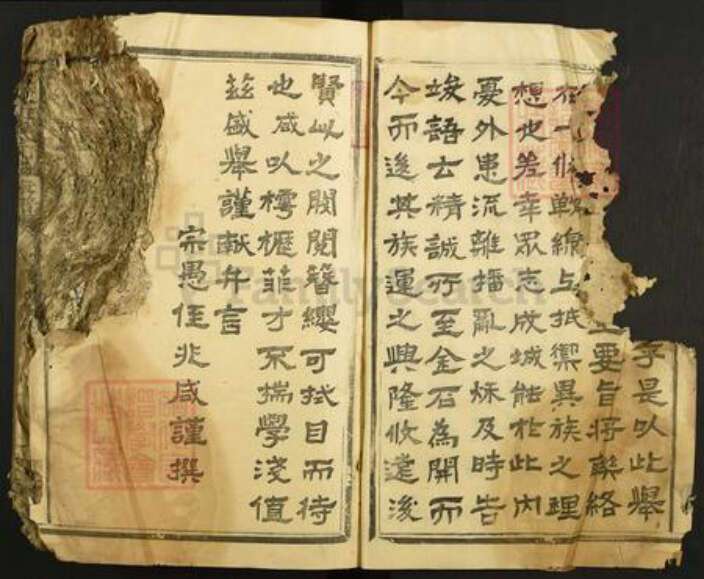 乎是以此舉
要旨將聯絡
一條戰線上抵禦異族之理
想也差幸眾志成城能於此內
憂外患流離播亂之秋及時告
竣語云精誠所至金石為開而
今而後其族運之興隆攸遠後
賢以之閥閱簪纓可拭目而待
也咸以樗櫪菲才不揣學淺值
茲盛舉謹献弁言
宗愚侄兆咸謹撰
FamilySearch